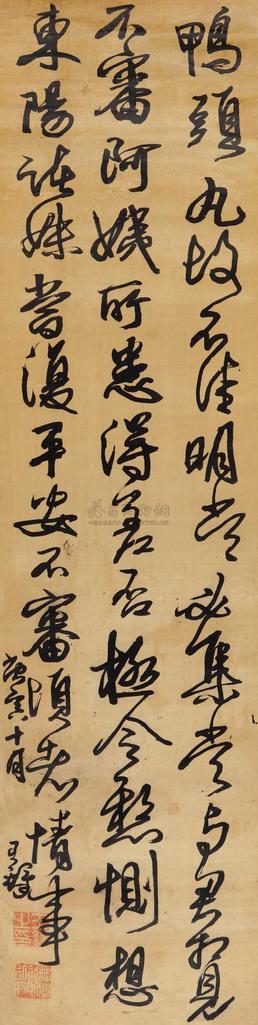 鴨頭丸故不佳明當必集當与君相見
不審阿姨所患得差否極令懸惻想
東陽諸妹當復平安不審頃者情事
庚寅十月 王鐸